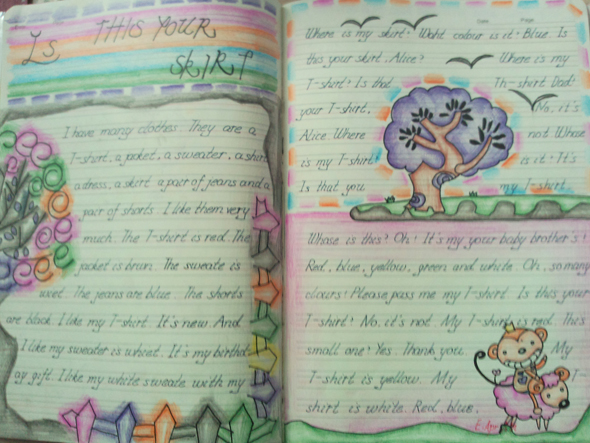 Is THIS YOUR
SKIRT
I have many clothes. They are a
T-shirt, a jacket, a sweater, a shirt
a dress, a skirt a pair of jeans and a
pair of shorts. I like them very
much. The T-shirt is red. The
jacket is brun. The sweate is
The jeans are blue. The shorts
are black. I like my T-shirt. It's new. And
I like my sweater is wheat. It's my birthd
ay gift. I like my white sweate with my
Date: Page:
Where is my skirt? Waht colour is it? Blue. Is
this your skirt, Alice? Where is my
T-shirt? Is that Th-shirt Dad?
your T-shirt, No, it's
Alice. Where not Whose
is my T-shirt is it? It's
Is that you my T-shirt
Whose is this? Oh! It's my your baby brother's!
Red, blue, yellow, green and white. Oh, so many
clours! Please, pass me my T-shirt. Is this your
T-shirt? No, it's not. My T-shirt is red. This
small one? Yes. Thank you. My
T-shirt is yellow. My
shirt is white. Red, blue,